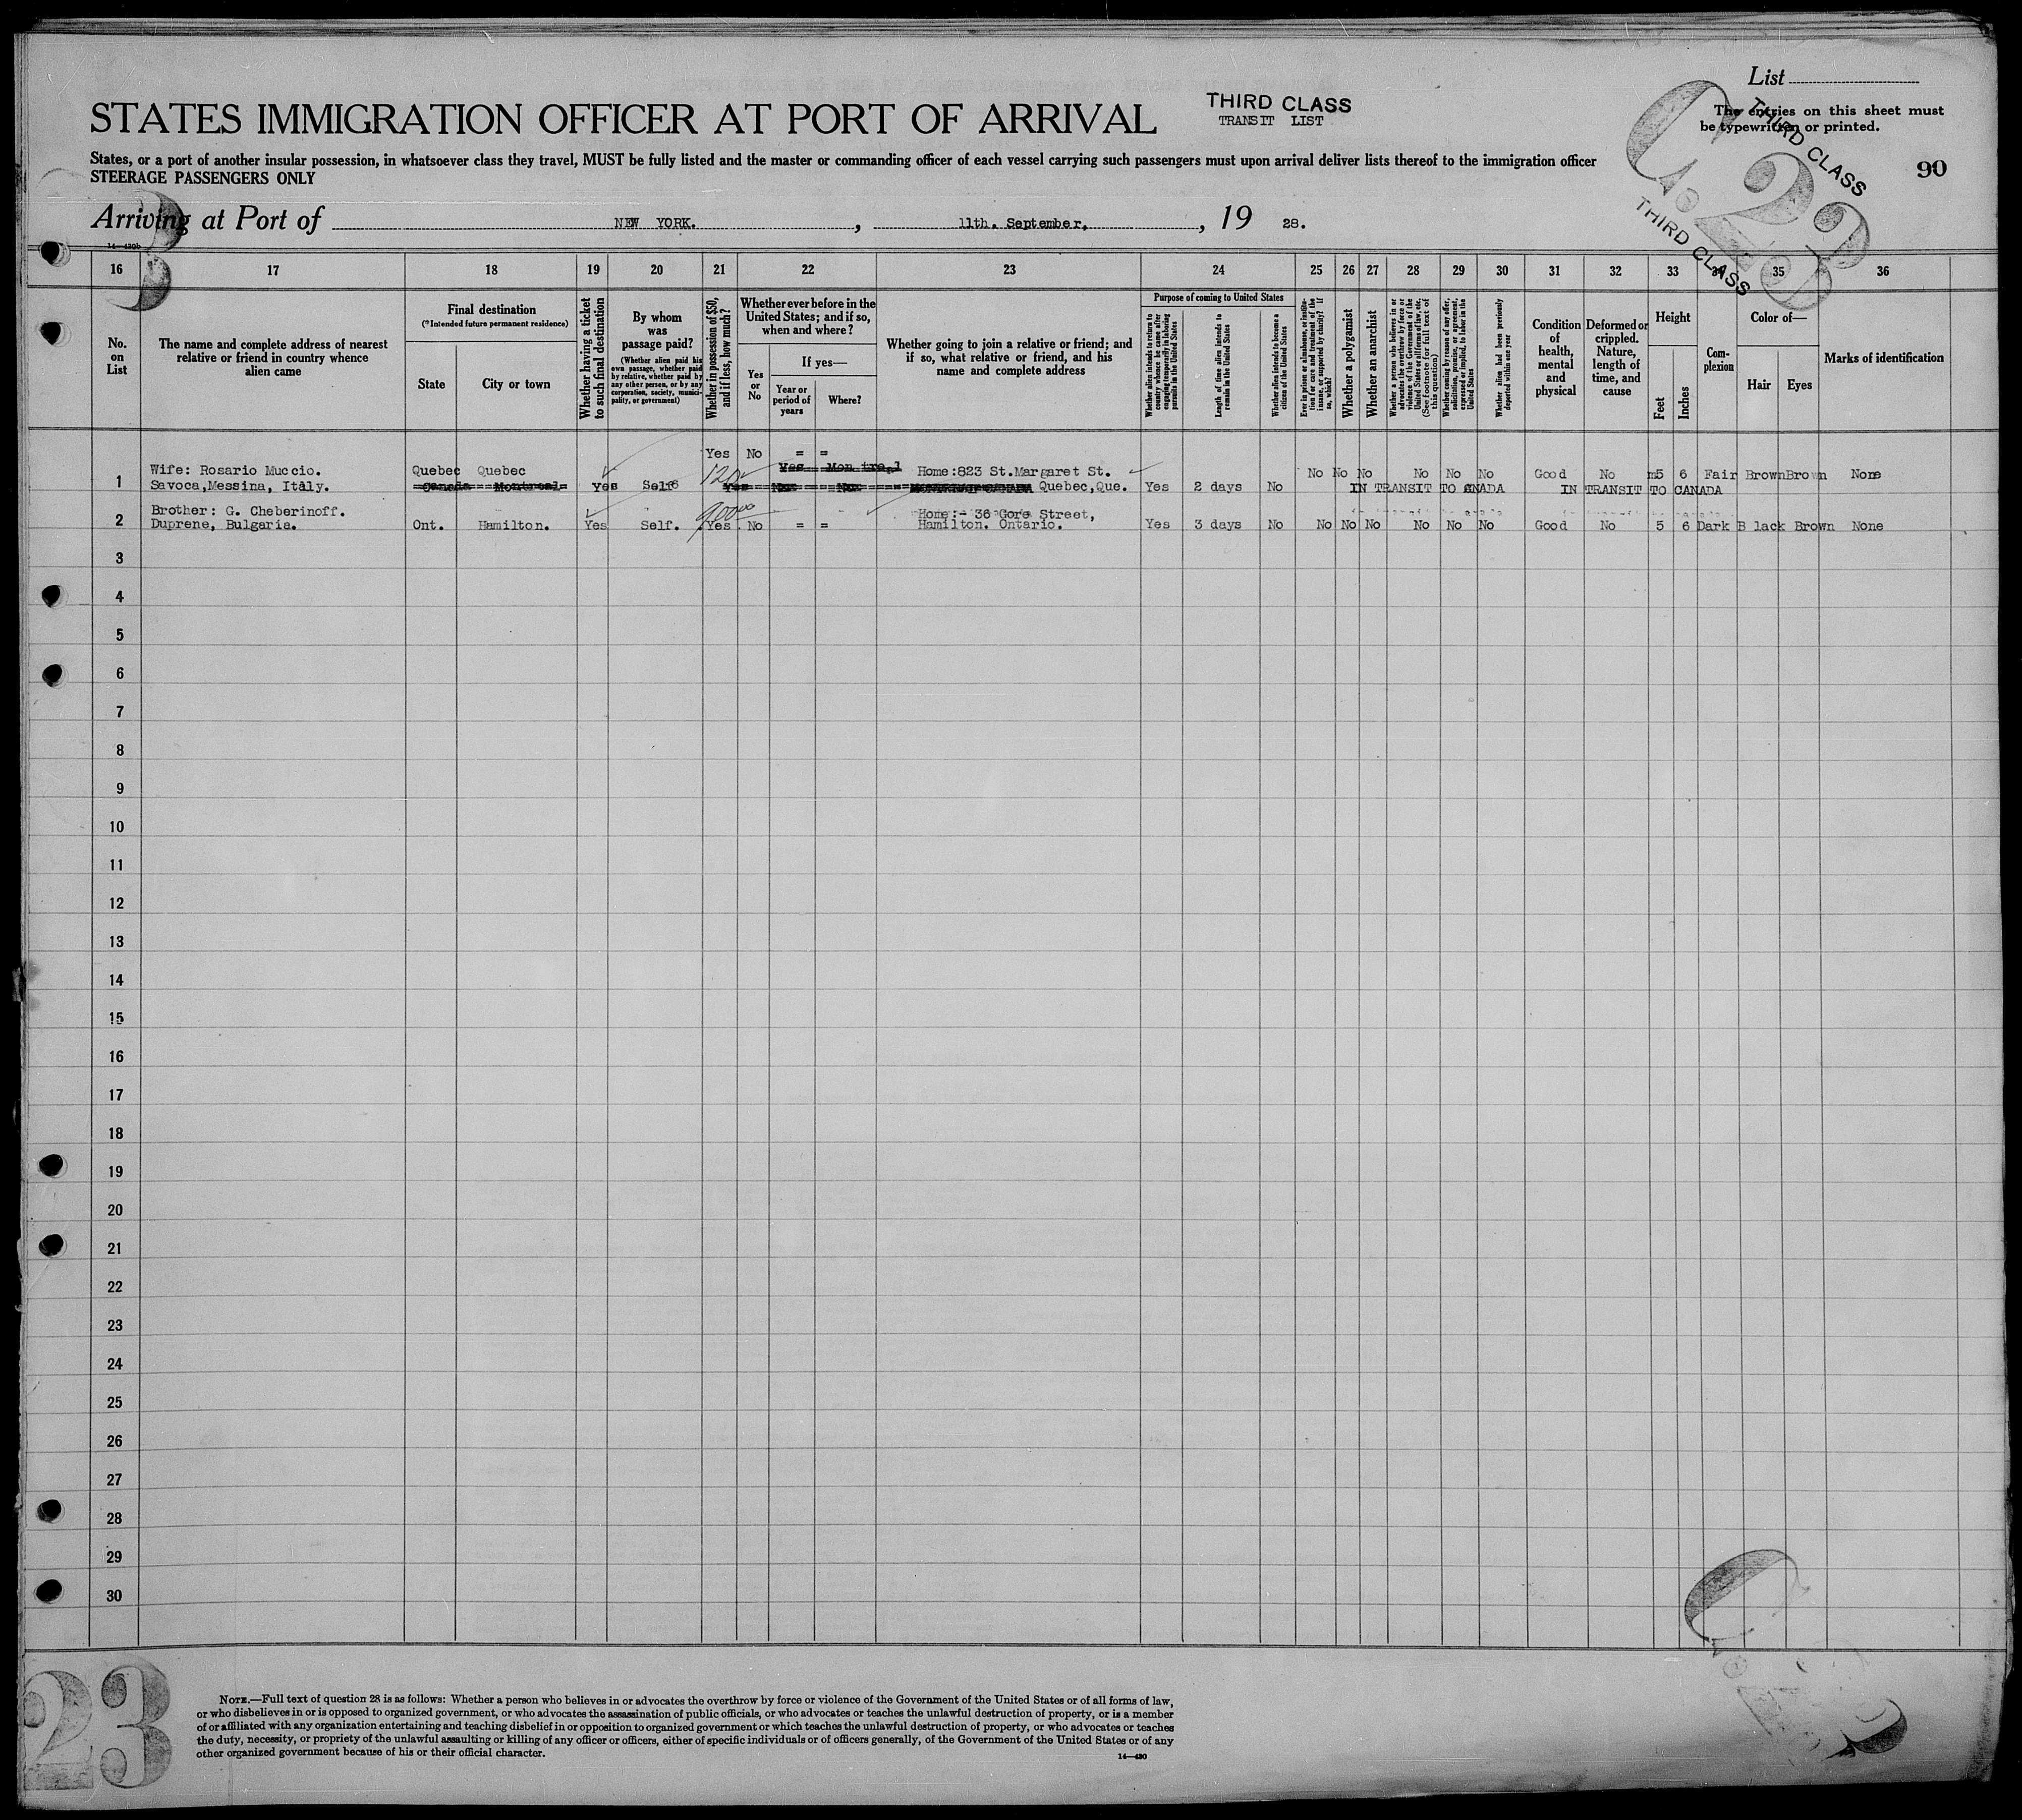 List
THIRD CLASS
TRANSIT LIST
The entries on this sheet must
be typewritten or printed.
STATES IMMIGRATION OFFICER AT PORT OF ARRIVAL
THIRD CLASS
THIRD CLASS
90
States, or a port of another insular possession, in whatsoever class they travel, MUST be fully listed and the master or commanding officer of each vessel carrying such passengers must upon arrival deliver lists thereof to the immigration officer
STEERAGE PASSENGERS ONLY
Arriving at Port of NEW YORK. , 11th. September, , 19 28.
14—430b
16 17 18 19 20 21 22 23 24 25 26 27 28 29 30 31 32 33 35 36
No. on List
The name and complete address of nearest
relative or friend in country whence
alien came
Final destination
(*Intended future permanent residence)
State
City or town
Whether having a ticket
to such final destination
By whom
was
passage paid?
(Whether alien paid his
own passage, whether paid
by relative, whether paid by
any other person, or by any
corporation, society, munici-
pality, or government)
Whether in possession of $50,
and if less, how much?
Whether ever before in the
United States; and if so,
when and where?
Yes
or
No
If yes—
Year or
period of
years
Where?
Whether going to join a relative or friend; and
if so, what relative or friend, and his
name and complete address
Purpose of coming to United States
Whether alien intends to return to
country whence he came after
engaging temporarily in laboring
pursuits in the United States
Length of time alien intends to
remain in the United States
Whether alien intends to become a
citizen of the United States
Ever in prison or almshouse, or institu-
tion for care and treatment of the
insane, or supported by charity? If
so, which?
Whether a polygamist
Whether an anarchist
Whether a person who believes in or
advocates the overthrow by force or
violence of the Government of the
United States or all forms of law, etc.
(See footnote for full text of
this question)
Whether coming by reason of any offer,
solicitation, promise, or agreement,
expressed or implied, to labor in the
United States
Whether alien had been previously
deported within one year
Condition
of
health,
mental
and
physical
Deformed or
crippled.
Nature,
length of
time, and
cause
Height
Feet
Inches
Com-
plexion
Color of—
Hair
Eyes
Marks of identification
Yes No = =
Wife: Rosario Muccio. Quebec Quebec 120 Yes Montreal Home:823 St.Margaret St. No No No No No No Good No 5 6 Fair Brown Brown None
1 Savoca,Messina, Italy. Canada Montreal Yes Self Yes Quebec,Que. Yes 2 days No IN TRANSIT TO CANADA IN TRANSIT TO CANADA
Brother: G. Cheberinoff. Home:- 36 Gore Street,
2 Duprene, Bulgaria. Ont. Hamilton. Yes Self. Yes No = = Hamilton. Ontario. Yes 3 days No No No No No No No Good No 5 6 Dark B lack Brown None
3
4
5
6
7
8
9
10
11
12
13
14
15
16
17
18
19
20
21
22
23
24
25
26
27
28
29
30
23
NOTE.—Full text of question 28 is as follows: Whether a person who believes in or advocates the overthrow by force or violence of the Government of the United States or of all forms of law,
or who disbelieves in or is opposed to organized government, or who advocates the assassination of public officials, or who advocates or teaches the unlawful destruction of property, or is a member
of or affiliated with any organization entertaining and teaching disbelief in or opposition to organized government or which teaches the unlawful destruction of property, or who advocates or teaches
the duty, necessity, or propriety of the unlawful assaulting or killing of any officer or officers, either of specific individuals or of officers generally, of the Government of the United States or of any
other organized government because of his or their official character.
14—430